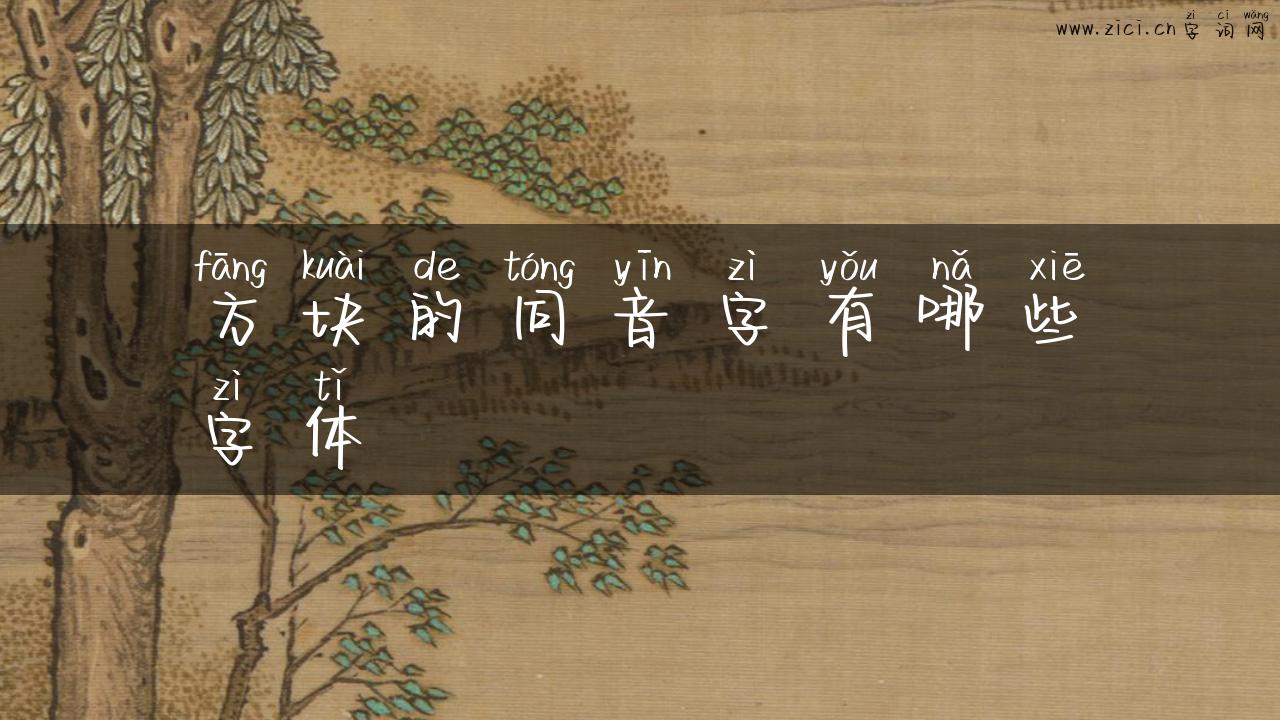 zì cí wǎng
www.zici.cn 字词网
fāng kuài de tóng yīn zì yǒu nǎ xiē
方块的同音字有哪些
zì tǐ
字体